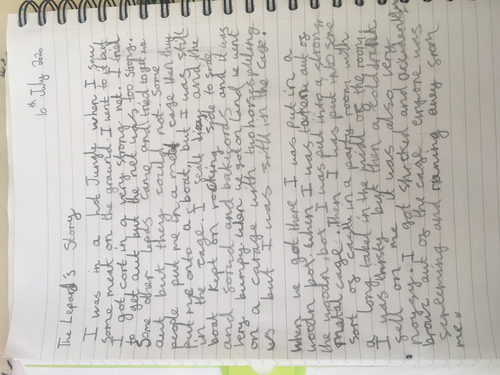 10th July 2020
The Lepard's Story
I was in a hot Jungle when I saw
some meat on the ground. I went to it but
I got cort in a very strong net. I tried
to get out but the net was too strong.
Some other lepds came and tried to get me
out but they could not. Some
people put me in a metl cage then they
put me onto a boat, but I was still
in the cage. I felt dizzy and the
boat kept on rocking side to side
and forwd and backwords and it was
very bumpy when we got on land we went
on a carage with two horses pulling
us but I was still in the cage!
When we got there I was put in a
woodn box. When I was taken out of
the woodn box I was put into a strong
metal cage. Then I was put into some
sort of castle in a party room with
a long tabel in the midl of the room.
I was bussy but then a Goldn
fell on me it was also very
noysy. I got shocked and accidently
brock out of the cage enyone was
screaming and runing away from
me.